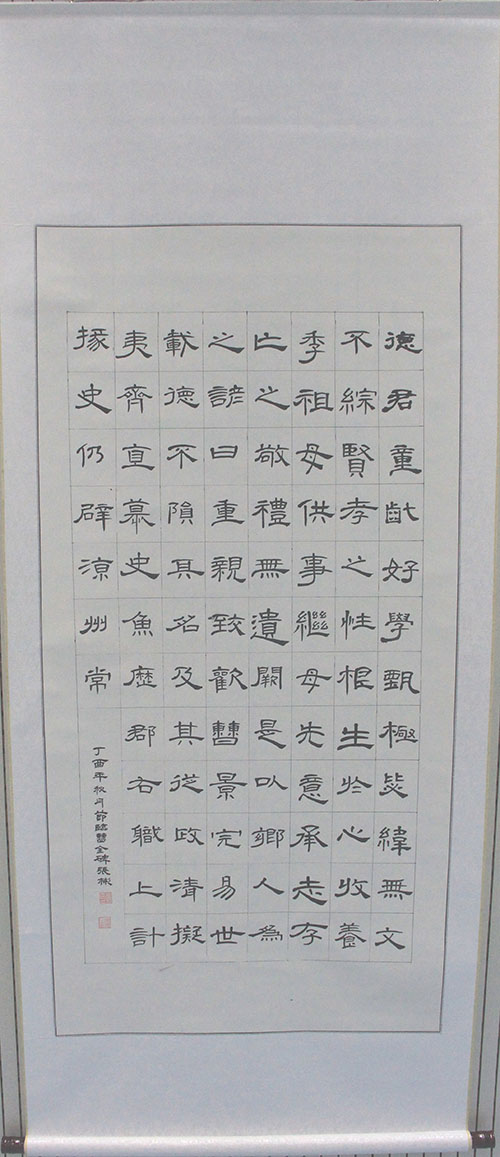 德君童齔好學甄極毖緯無文
不綜賢孝之性根生於心收養
季祖母供事繼母先意承志存
亡之敬禮無遺闕是以鄉人為
之諺曰重親致歡曹景完易世
載德不隕其名及其從政清擬
夷齊直慕史魚歷郡右職上計
掾史仍辟涼州常
丁酉年秋月節臨曹全碑張彬